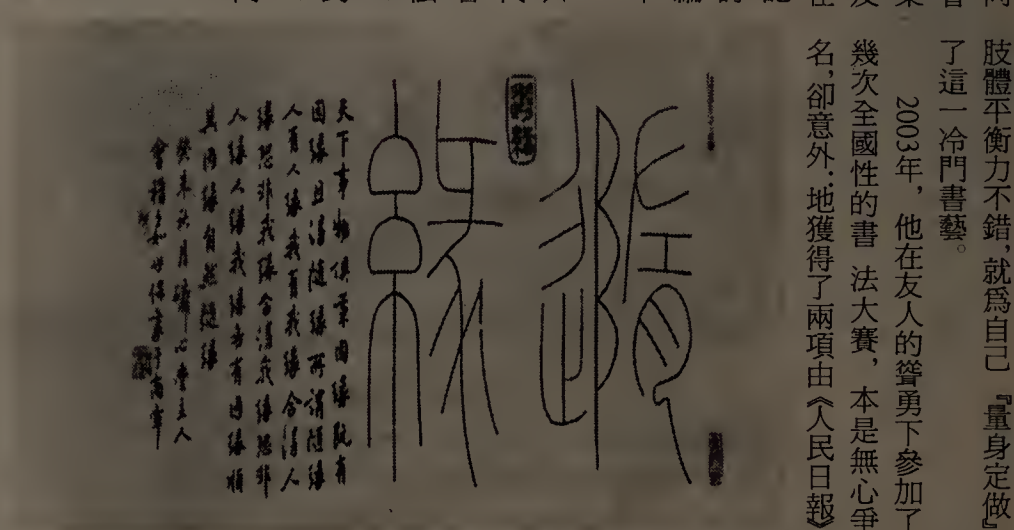 肢體平衡力不錯，就爲自己『量身定做』
了這一冷門書藝。
2003年，他在友人的聳勇下參加了
幾次全國性的書 法大賽，本是無心爭
名，卻意外：地獲得了兩項由《人民日報》
隨
緣
天下事物俱業因緣既有
因緣且須隨緣所謂隨緣
人有人緣我有我緣合得人
緣恐非我緣合得我緣恐非
人緣人緣我緣各有因緣順
其因緣自然隨緣
癸未秋月